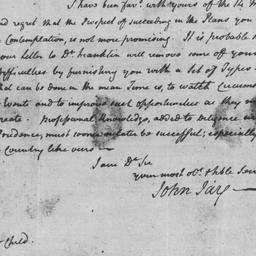 I have been fav.d with yours of the 14
and regret that the Prospect of succeeding in the Plans you
Contemplation, is not more promising. It is probable
your Letter to Dr Franklin will remove some of your
Difficulties by furnishing you with a Set of Types
that can be done in the mean Time is, to watch Circum
wants and to improve such opportunities as they
create. Professional Knowledge, added to Diligence
Prudence, must sooner or later be successful; especially
a Country like ours —
I am Dr Sir
your most obt. & hble Ser
John Jay —
Child.